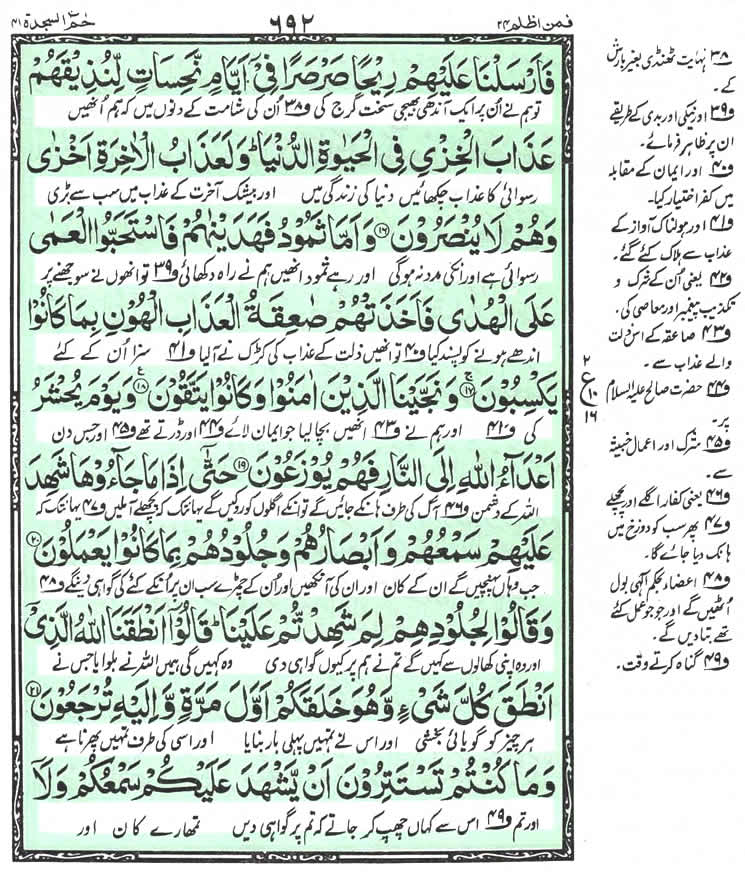 فمن اظلم ۲۴
٦٩٢
حٰمٓ السجدة ۴۱
فَاَرْسَلْنَا عَلَيْهِمْ رِيْحًا صَرْصَرًا فِيْۤ اَيَّامٍ نَّحِسَاتٍ لِّنُذِيْقَهُمْ
تو ہم نے اُن پر ایک آندھی بھیجی سخت گرج کی و۳۸ اُن کی شامت کے دنوں میں کہ ہم اُنھیں
عَذَابَ الْخِزْيِ فِي الْحَيٰوةِ الدُّنْيَا ؕ وَلَعَذَابُ الْاٰخِرَةِ اَخْزٰى
رسوائی کا عذاب چکھائیں دنیا کی زندگی میں اور بیشک آخرت کے عذاب میں سب سے بڑی
وَهُمْ لَا يُنْصَرُوْنَ ۝۱۶ وَاَمَّا ثَمُوْدُ فَهَدَيْنٰهُمْ فَاسْتَحَبُّوا الْعَمٰى
رسوائی ہے اور انکی مدد نہ ہوگی اور رہے ثمود انھیں ہم نے راہ دکھائی و۳۹ تو انھوں نے سوجھنے پر
عَلَى الْهُدٰى فَاَخَذَتْهُمْ صٰعِقَةُ الْعَذَابِ الْهُوْنِ بِمَا كَانُوْا
اندھے ہونے کو پسند کیا و۴۰ تو انھیں ذلت کے عذاب کی کڑک نے آلیا و۴۱ سزا اُن کے کئے
يَكْسِبُوْنَ ۝۱۷ وَنَجَّيْنَا الَّذِيْنَ اٰمَنُوْا وَكَانُوْا يَتَّقُوْنَ ۝۱۸ وَيَوْمَ يُحْشَرُ
کی و۴۲ اور ہم نے و۴۳ انھیں بچالیا جو ایمان لائے و۴۴ اور ڈرتے تھے و۴۵ اور جس دن
اَعْدَآءُ اللّٰهِ اِلَى النَّارِ فَهُمْ يُوْزَعُوْنَ ۝۱۹ حَتّٰىۤ اِذَا مَا جَآءُوْهَا شَهِدَ
اللہ کے دشمن و۴۶ آگ کی طرف ہانکے جائیں گے تو انکے اگلوں کو روکیں گے یہانتک کہ پچھلے آملیں و۴۷ یہانتک کہ
عَلَيْهِمْ سَمْعُهُمْ وَاَبْصَارُهُمْ وَجُلُوْدُهُمْ بِمَا كَانُوْا يَعْمَلُوْنَ ۝۲۰
جب وہاں پہنچیں گے ان کے کان اور ان کی آنکھیں اور اُن کے چمڑے سب ان پر اُنکے کئے کی گواہی دینگے و۴۸
وَقَالُوْا لِجُلُوْدِهِمْ لِمَ شَهِدْتُّمْ عَلَيْنَا ؕ قَالُوْۤا اَنْطَقَنَا اللّٰهُ الَّذِيْۤ
اور وہ اپنی کھالوں سے کہیں گے تم نے ہم پر کیوں گواہی دی وہ کہیں گی ہمیں اللہ نے بلوایا جس نے
اَنْطَقَ كُلَّ شَيْءٍ وَّهُوَ خَلَقَكُمْ اَوَّلَ مَرَّةٍ وَّاِلَيْهِ تُرْجَعُوْنَ ۝۲۱
ہر چیز کو گویائی بخشی اور اس نے تمہیں پہلی بار بنایا اور اسی کی طرف تمہیں پھرنا ہے
وَمَا كُنْتُمْ تَسْتَتِرُوْنَ اَنْ يَّشْهَدَ عَلَيْكُمْ سَمْعُكُمْ وَلَاۤ
اور تم و۴۹ اس سے کہاں چھپ کر جاتے کہ تم پر گواہی دیں تمھارے کان اور
و۳۸ نہایت ٹھنڈی بغیر بارش
کے۔
و۳۹ اور نیکی اور بدی کے طریقے
ان پر ظاہر فرمائے۔
و۴۰ اور ایمان کے مقابلہ
میں کفر اختیار کیا۔
و۴۱ اور ہولناک آواز کے
عذاب سے ہلاک کئے گئے۔
و۴۲ یعنی اُن کے شرک و
تکذیب پیغمبر اور معاصی کی۔
و۴۳ صاعقہ کے اس ذلت
والے عذاب سے۔
و۴۴ حضرت صالح علیہ السلام
پر۔
و۴۵ شرک اور اعمال خبیثہ
سے۔
و۴۶ یعنی کفار اگلے اور پچھلے
و۴۷ پھر سب کو دوزخ میں
ہانک دیا جائے گا۔
و۴۸ اعضاء بحکم الٰہی بول
اُٹھیں گے اور جو جو عمل کئے
تھے بتادیں گے۔
و۴۹ گناہ کرتے وقت۔
۲
ع
۱۰
۱۶